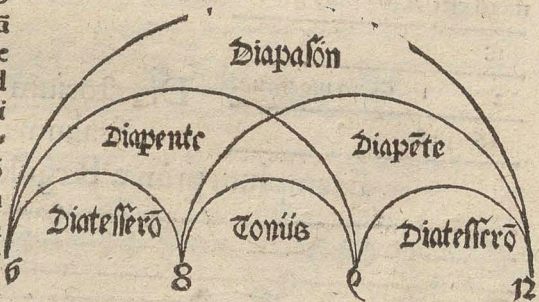 Diapasón
Diapente Diapēte
Diatesserō Tonus Diatesserō
6 8 9 12